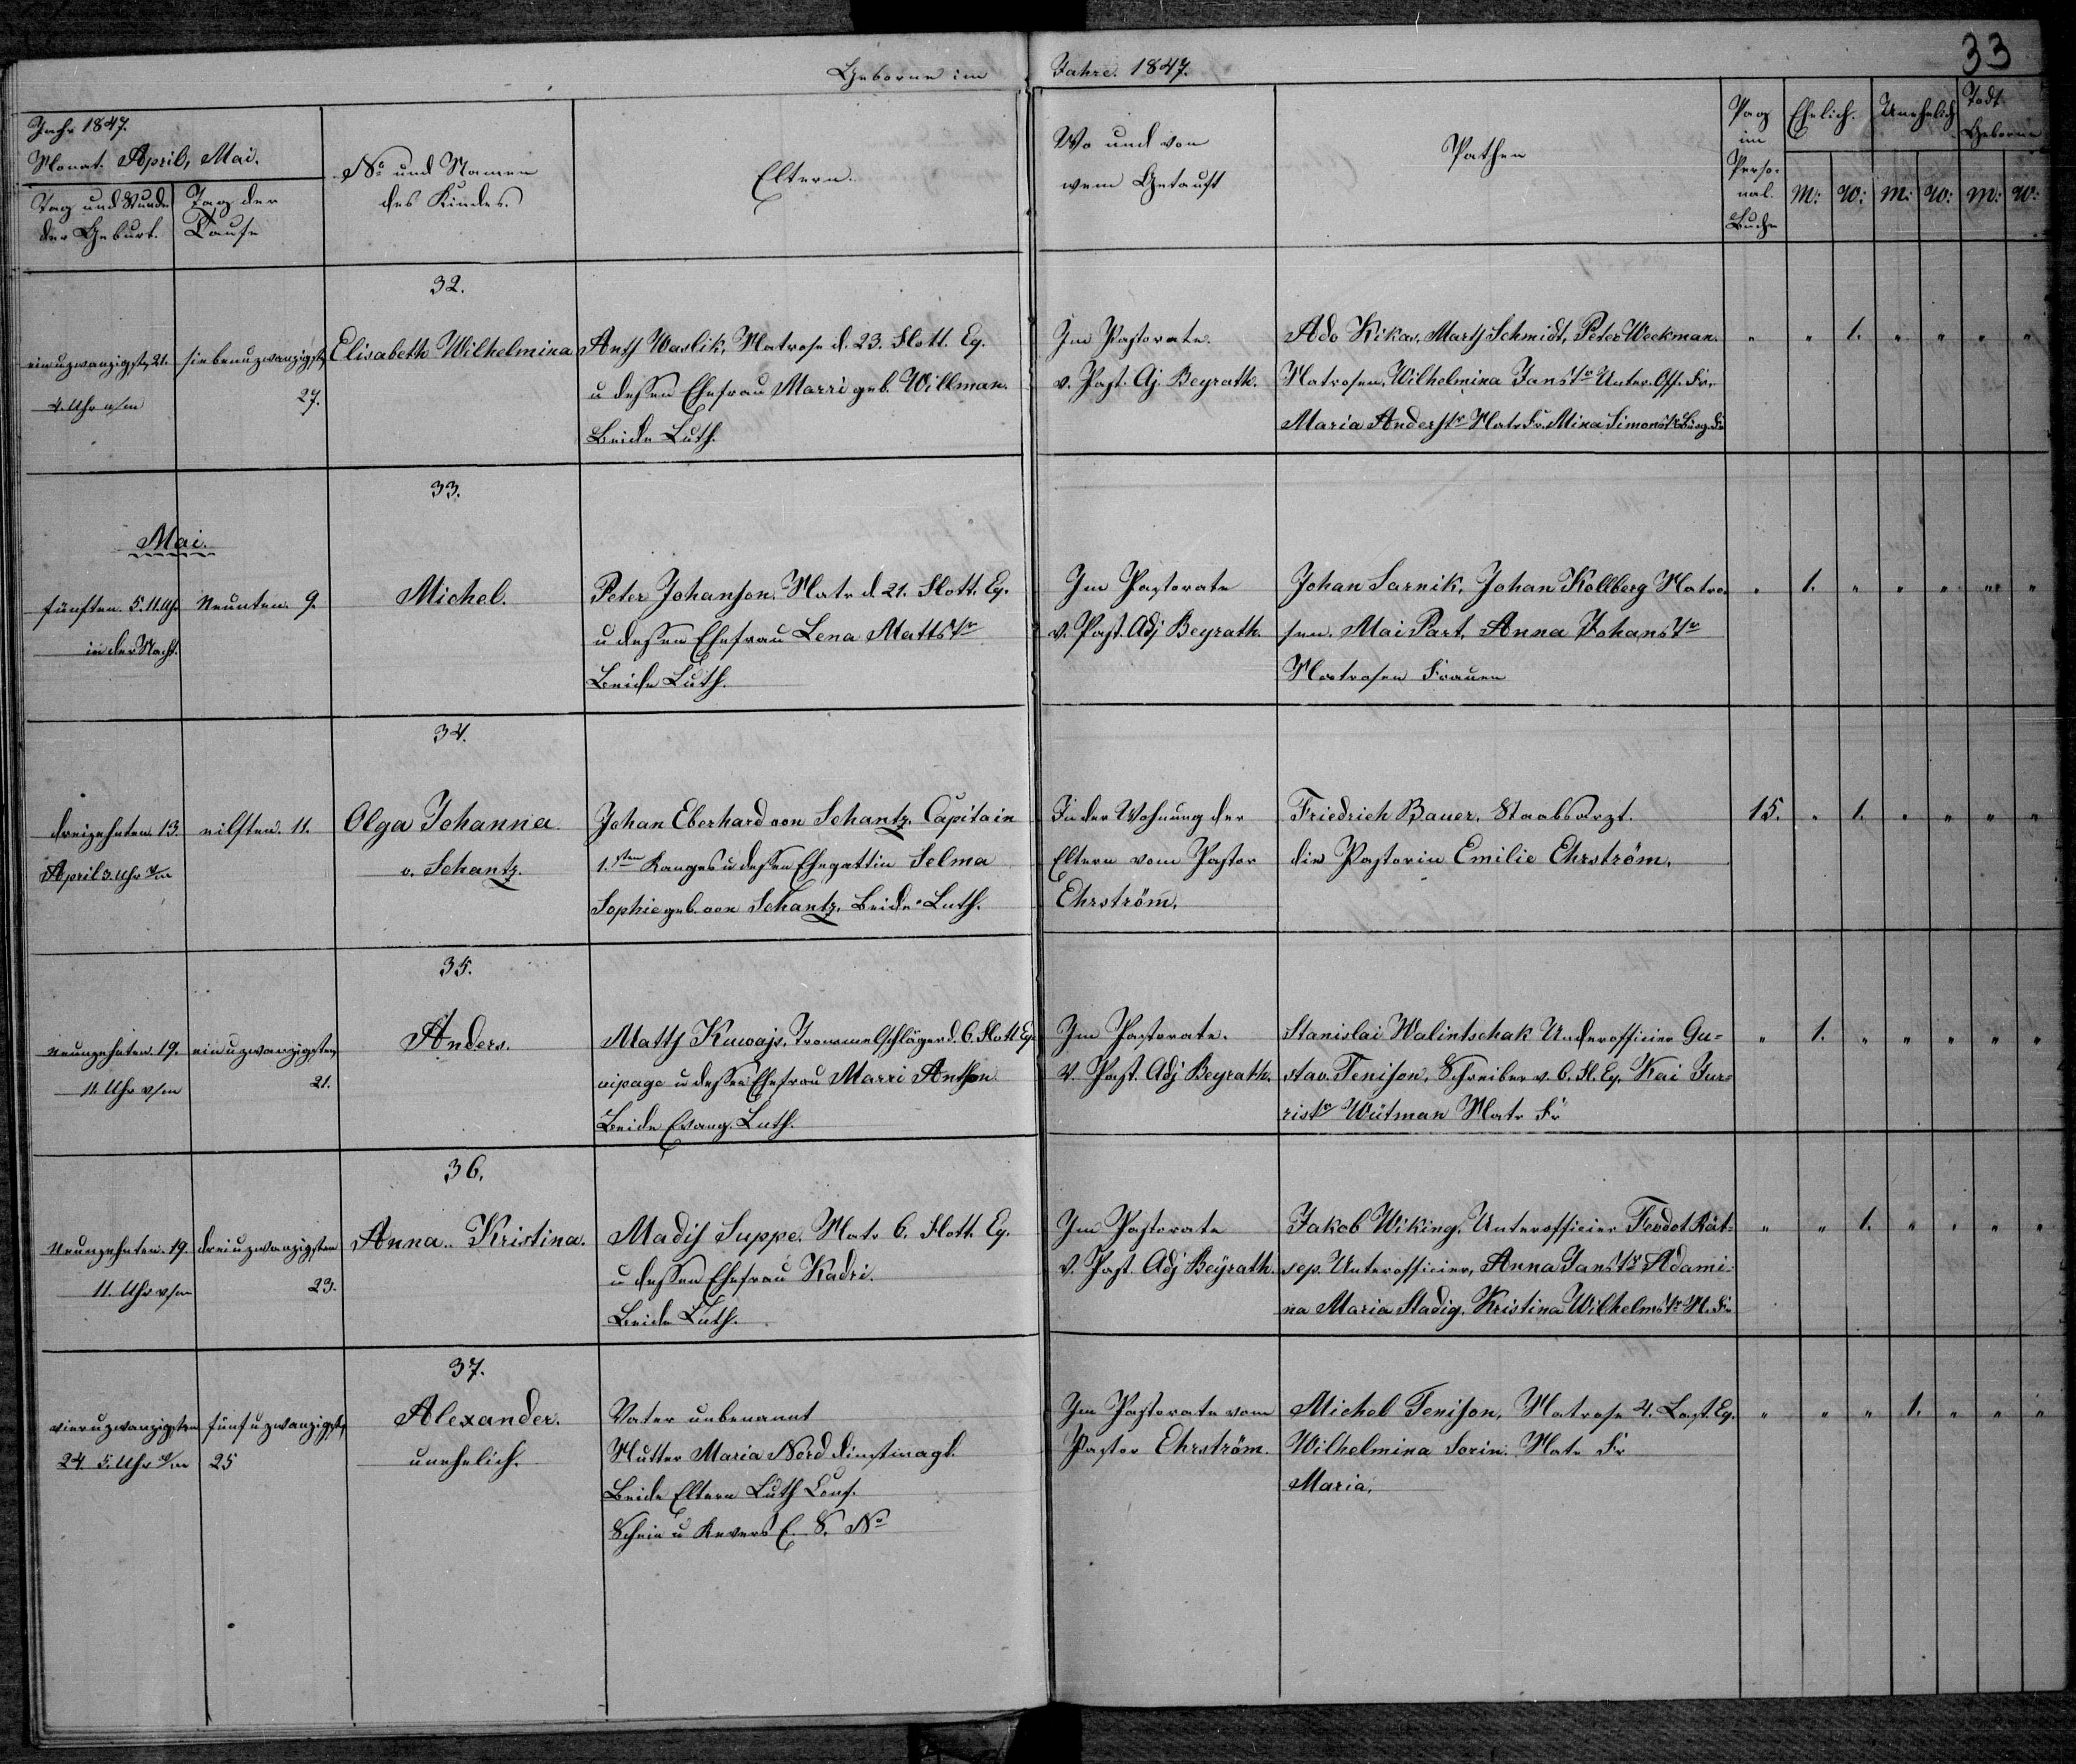 33
Geborne im Jahre. 1847.
Jahr 1847.
Monat. April, Mai.
Tag und Stunde der Geburt.
Tag der Taufe
No und Namen des Kindes.
Eltern.
Wo und von wem Getauft
Pathen
Pag im Perso-nal. Buche
Ehelich.
Unehelich
Todt Geborne
M: W: M: W: M: W:
32.
einuzwanzigsten 21.
4. Uhr n/m
siebenuzwanzigsten
27.
Elisabeth Wilhelmina
Ants Waslik, Matrose d. 23. Flott. Eq.
u dessen Ehefrau Marri geb. Willman.
Beide Luth.
Im Pastorate.
v. Past. Aj. Beyrath.
Ado Kikas, Marts Schmidt, Peter Weekman.
Matrosen, Wilhelmina Janstr Unter. Off. Fr,
Maria Anderstr Matr. Fr. Mina Simonstr
" " 1. " " " "
33.
Mai.
fünften. 5. 11. Uhr
in der Nacht.
Neunten. 9.
Michel.
Peter Johanson. Matr d 21. Flott. Eq.
u dessen Ehefrau Lena Mattstr
Beide Luth.
Im Pastorate
v. Past. Adj Beyrath.
Johan Sarnik, Johan Kollberg Matro-
sen. Mai Part, Anna Johanstr
Matrosen Frauen
" 1. " " " " "
34.
dreizehnten 13.
April 3. Uhr n/m
eilften. 11.
Olga Johanna.
v. Schantz.
Johan Eberhard von Schantz. Capitain
1.sten Ranges u dessen Ehegattin Selma
Sophie geb. von Schantz, Beide Luth.
In der Wohnung der
Eltern vom Pastor
Ehrström,
Friedrich Bauer, Staabsarzt.
die Pastorin Emilie Ehrström,
15. " 1. " " " "
35.
neunzehnten. 19.
11. Uhr v/m
einuzwanzigsten
21.
Anders.
Matts Kuwajs, Trommelschläger d. 6. Flott Eq
uipage u dessen Ehefrau Marri Antson.
Beide Evang. Luth.
Im Pastorate.
V. Past. Adj Beyrath.
Stanislai Walintschak Underofficier Gu-
stav. Tenison, Schreiber v. 6. Fl. Eq. Kai Jur-
ristr Wütman Matr Fr
" 1. " " " " "
36.
Neunzehnten. 19.
11. Uhr v/m
dreiuzwanzigsten
23.
Anna.. Kristina.
Madis Suppe. Matr 6. Flott. Eq.
u dessen Ehefrau Kadri.
Beide Luth.
Im Pastorate
V. Past. Adj Beyrath.
Jakob Wiking, Unterofficier Feodot Rät-
sep. Unterofficier, Anna Janstr Adami-
na Maria Stadig, Kristina Wilhelmstr M. Fr
" " 1. " " " "
37.
vieruzwanzigsten
24. 5. Uhr n/m
fünfuzwanzigsten
25
Alexander.
unehelich.
Vater unbenannt
Mutter Maria Nord dienstmagd.
Beide Eltern Luth Conf.
Schein u Revers No
Im Pastorate vom
Pastor Ehrström.
Michel Tenison, Matrose 4. Last. Eq.
Wilhelmina Sorin. Matr Fr
Maria,
" " " 1. " " "